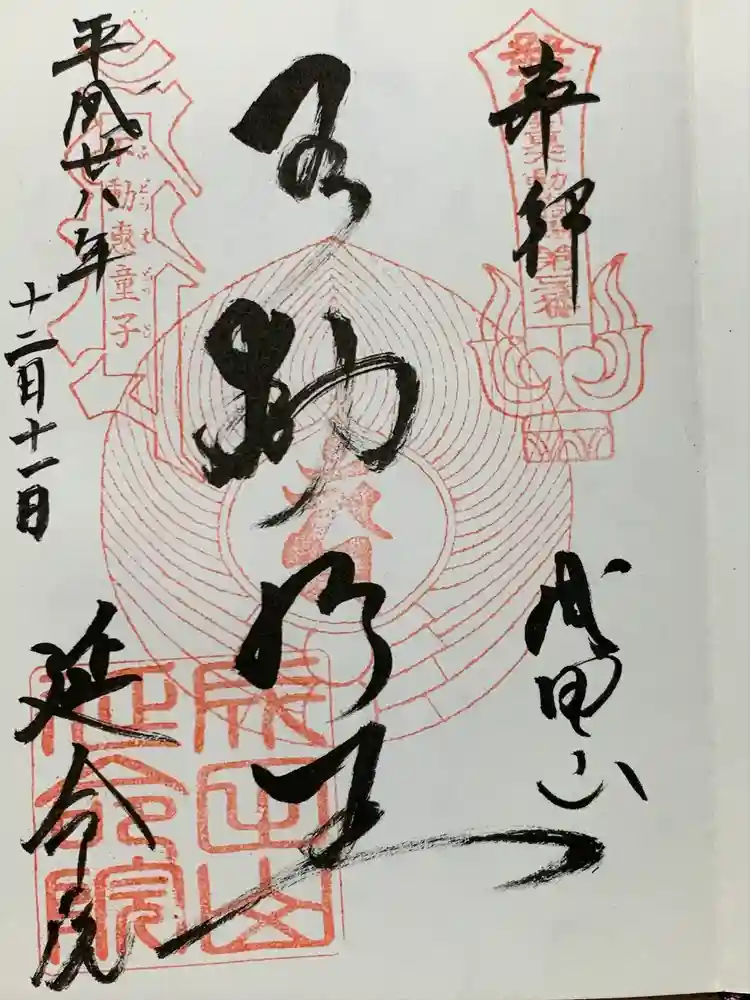 奉拝
成田山
不動明王
平成廿八年
十二月十一日
延命院
不動恵童子
成田山
延命院